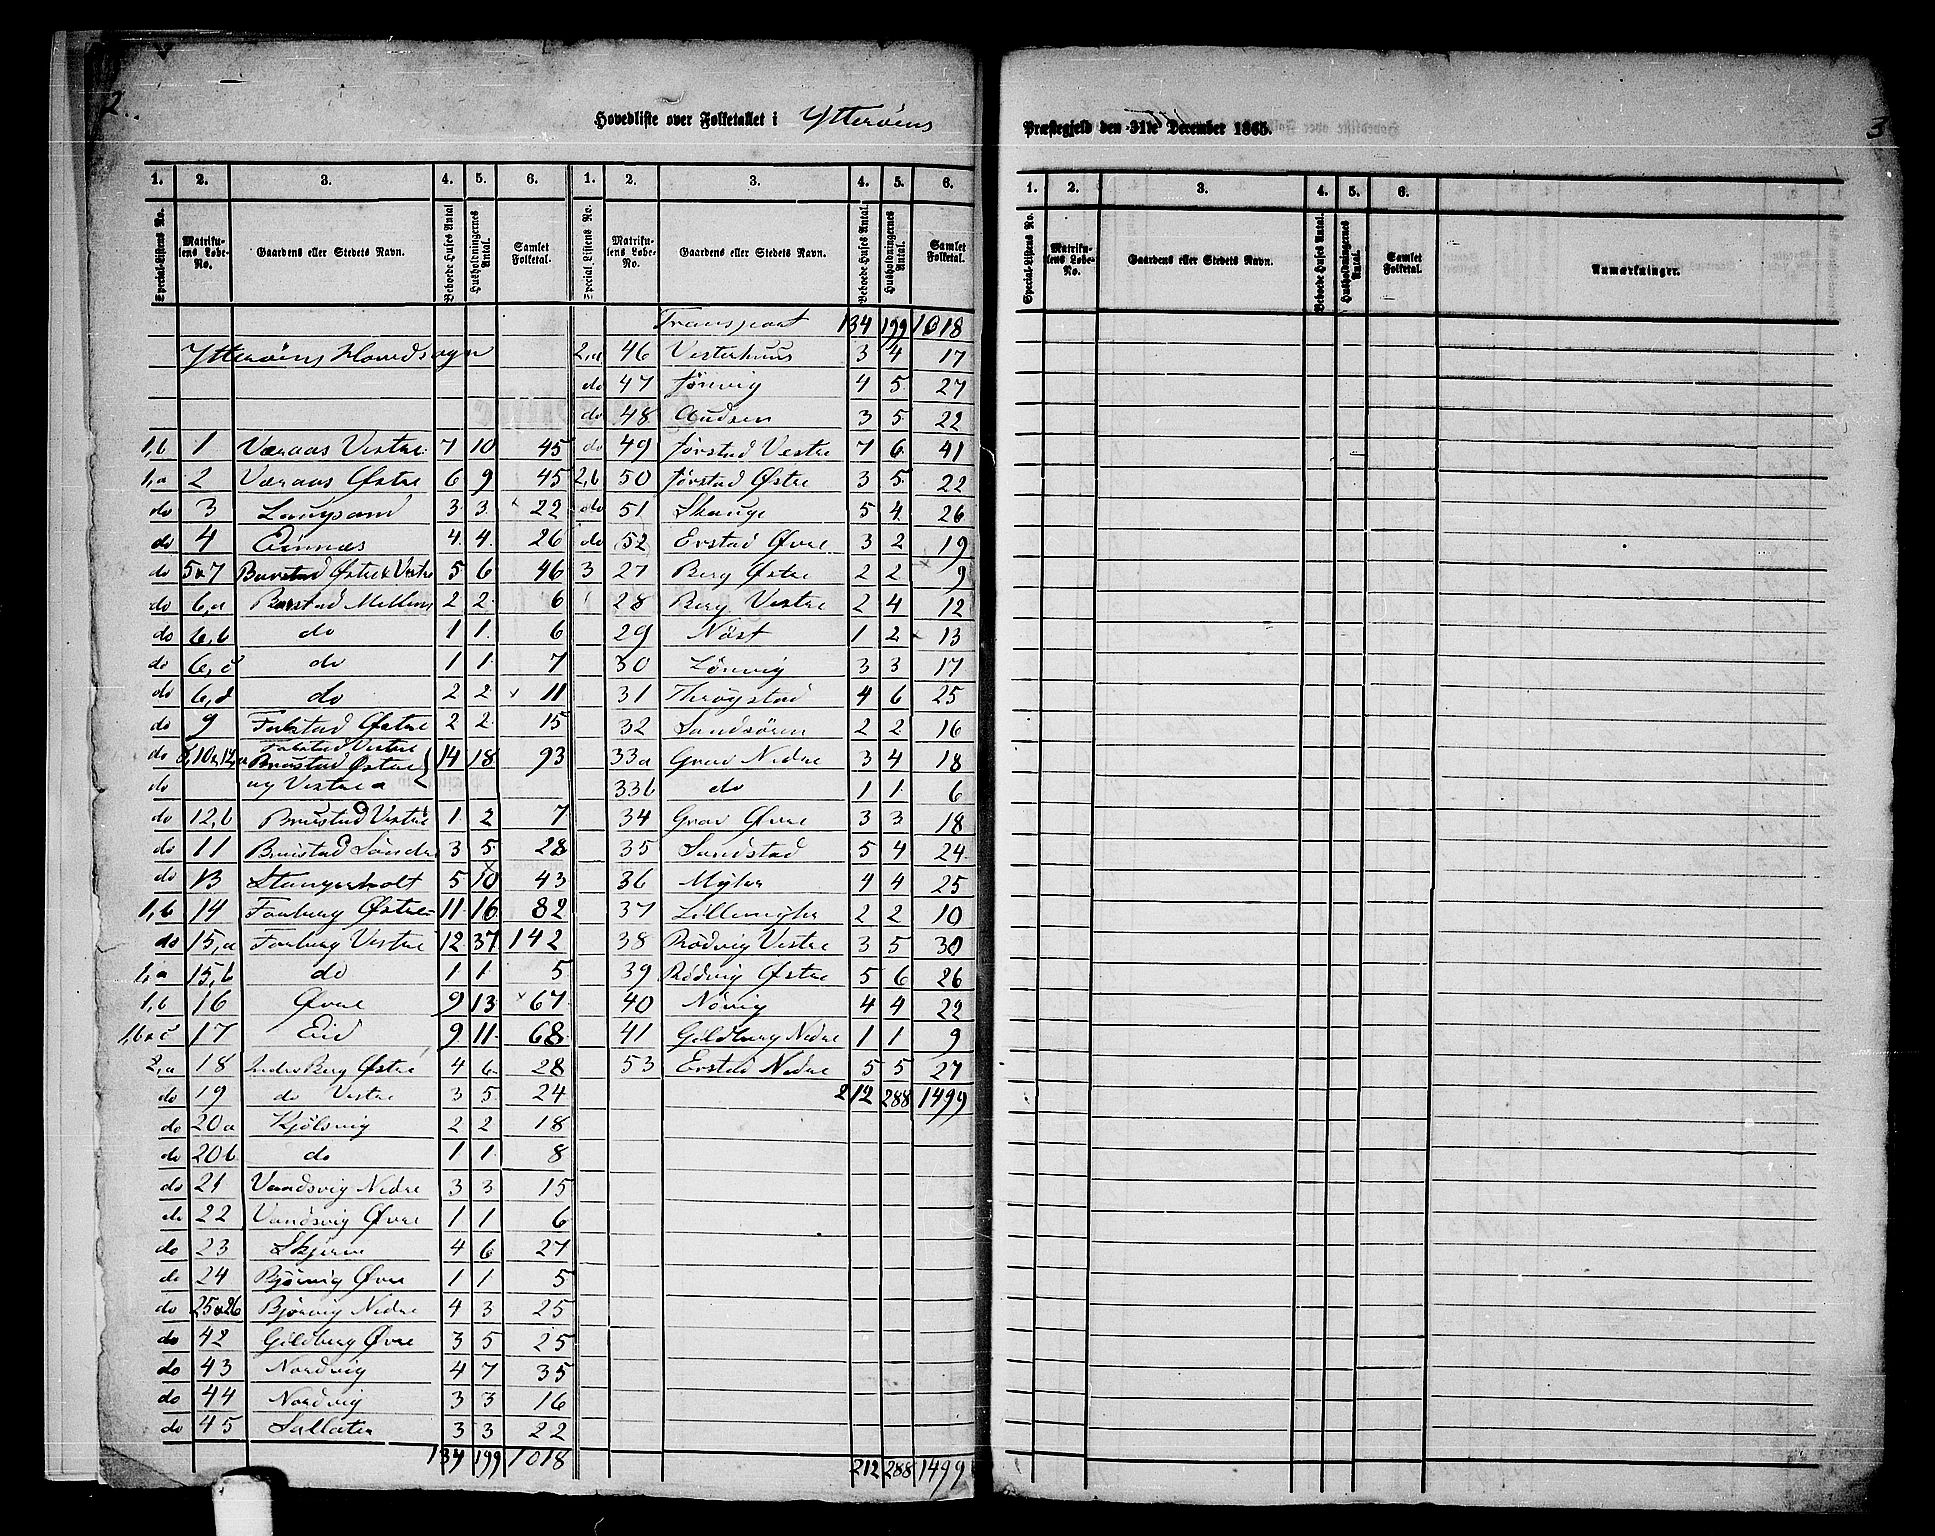 2.
Hovedliste over Folketallet i Ytterøens
Præstegjeld den 31te December 1865.
3
1. 2. 3. 4. 5. 6. 1. 2. 3. 4. 5. 6.
Special-Listens No. Matrikulens Løbe-No. Gaardens eller Stedets Navn. Beboede Huses Antal Husholdningernes Antal. Samlet Folketal. Special-Listens No. Matrikulens Løbe-No. Gaardens eller Stedets Navn. Beboede Huses Antal. Husholdningernes Antal. Samlet Folketal.
Ytterøens Hovedsogn
1,b 1 Væraas Vestre 7 10 45
1,a 2 Væraas Østre 6 9 45
do 3 Langsand 3 3 22
do 4 Einnæs 4 4 26
do 5&7 Barstad Østre & Vestre 5 6 46
do 6,a Barstad Mellem 2 2 6
do 6,b do 1 1 6
do 6,c do 1 1 7
do 6,d do 2 2 11
do 9 Falstad Østre 2 2 15
do 8,10&12,a Falstad Vestre Brustad Østre 14 18 93
do og Vestre a
do 12,b Brustad Vestre 1 2 7
do 11 Brustad Søndre 3 5 28
do 13 Stangerholt 5 10 43
1,b 14 Forberg Østre 11 16 82
do 15,a Forberg Vestre 12 37 142
1,a 15,b do 1 1 5
1,b 16 Øvre 9 13 67
1,b&c 17 Eid 9 11 68
2,a 18 Indre Berg Østre 4 6 28
do 19 do Vestre 3 5 24
do 20a Kjølsvig 2 2 18
do 20b do 1 1 8
do 21 Vandsvig Nedre 3 3 15
do 22 Vandsvig Øvre 1 1 6
do 23 Skjerve 4 6 27
do 24 Bjørvig Øvre 1 1 5
do 25&26 Bjørvig Nedre 4 3 25
do 42 Gildberg Øvre 3 5 25
do 43 Nordvig 4 7 35
do 44 Nordvig 3 3 16
do 45 Salater 3 3 22
134 199 1018
Transport 134 199 1018
2,a 46 Vesterhuus 3 4 17
do 47 Jørvig 4 5 27
do 48 Audsen 3 5 22
do 49 Jørstad Vestre 7 6 41
2,b 50 Jørstad Østre 3 5 22
do 51 Skauge 5 4 26
do 52 Erstad Øvre 3 2 19
3 27 Berg Østre 2 2 9
28 Berg Vestre 2 4 12
29 Nøst 1 2 13
30 Lønvig 3 3 17
31 Thrøgstad 4 6 25
32 Sandsøren 2 2 16
33a Grav Nedre 3 4 18
33b do 1 1 6
34 Grav Øvre 3 3 18
35 Sandstad 5 4 24
36 Myhr 4 4 25
37 Lillemyhr 2 2 10
38 Rødvig Vestre 3 5 30
39 Rødvig Østre 5 6 26
40 Nøvig 4 4 22
41 Gildberg Nedre 1 1 9
53 Erstad Nedre 5 5 27
212 288 1499
212 288 1499
1. 2. 3. 4. 5. 6.
Special-Listens No. Matrikulens Løbe-No. Gaardens eller Stedets Navn. Beboede Huses Antal. Husholdningernes Antal. Samlet Folketal. Anmærkninger.